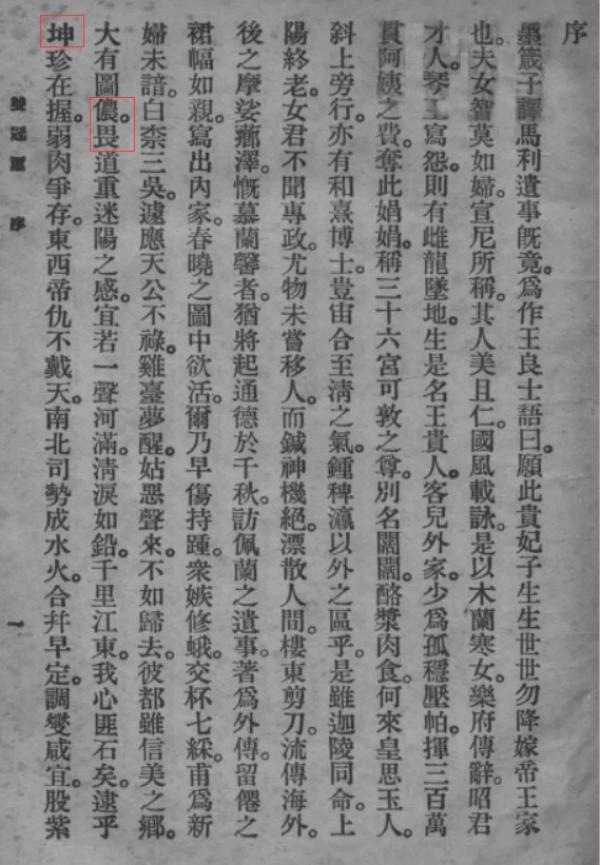 序
墨箴子譯馬利遺事旣竟。爲作王良士語曰。願此貴妃子生生世世勿降嫁帝王家
也。夫女智莫如婦。宣尼所稱。其人美且仁。國風載詠。是以木蘭寒女。樂府傳辭。昭君
才人。琴工寫怨。則有雌龍墜地。生是名王貴人。客兒外家。少爲孤穩壓帕。揮三百萬
貫阿姨之費。奪此娟娟。稱三十六宮可敦之尊。別名闊闊。酪漿肉食。何來皇思玉人。
斜上旁行。亦有和熹博士。豈宙合至淸之氣。鍾稗瀛以外之區乎。是雖迦陵同命。上
陽終老。女君不聞專政。尤物未嘗移人。而鍼神機絕。漂散人間。樓東剪刀。流傳海外。
後之摩娑薌澤。慨慕蘭馨者。猶將起通德於千秋。訪佩蘭之遺事。著爲外傳。留僊之
裙幅如親。寫出內家。春曉之圖中欲活。爾乃早傷持踵。衆嫉修蛾。交杯七綵。甫爲新
婦未諳。白柰三吳。遽應天公不祿。雞臺夢醒。姑惡聲來。不如歸去。彼都雖信美之鄉。
大有圖儂。畏道重迷陽之感。宜若一聲河滿。淸淚如鉛。千里江東。我心匪石矣。逮乎
坤珍在握。弱肉爭存。東西帝仇不戴天。南北司勢成水火。合幷早定。調燮咸宜。股紫
雙冠璽 序
1